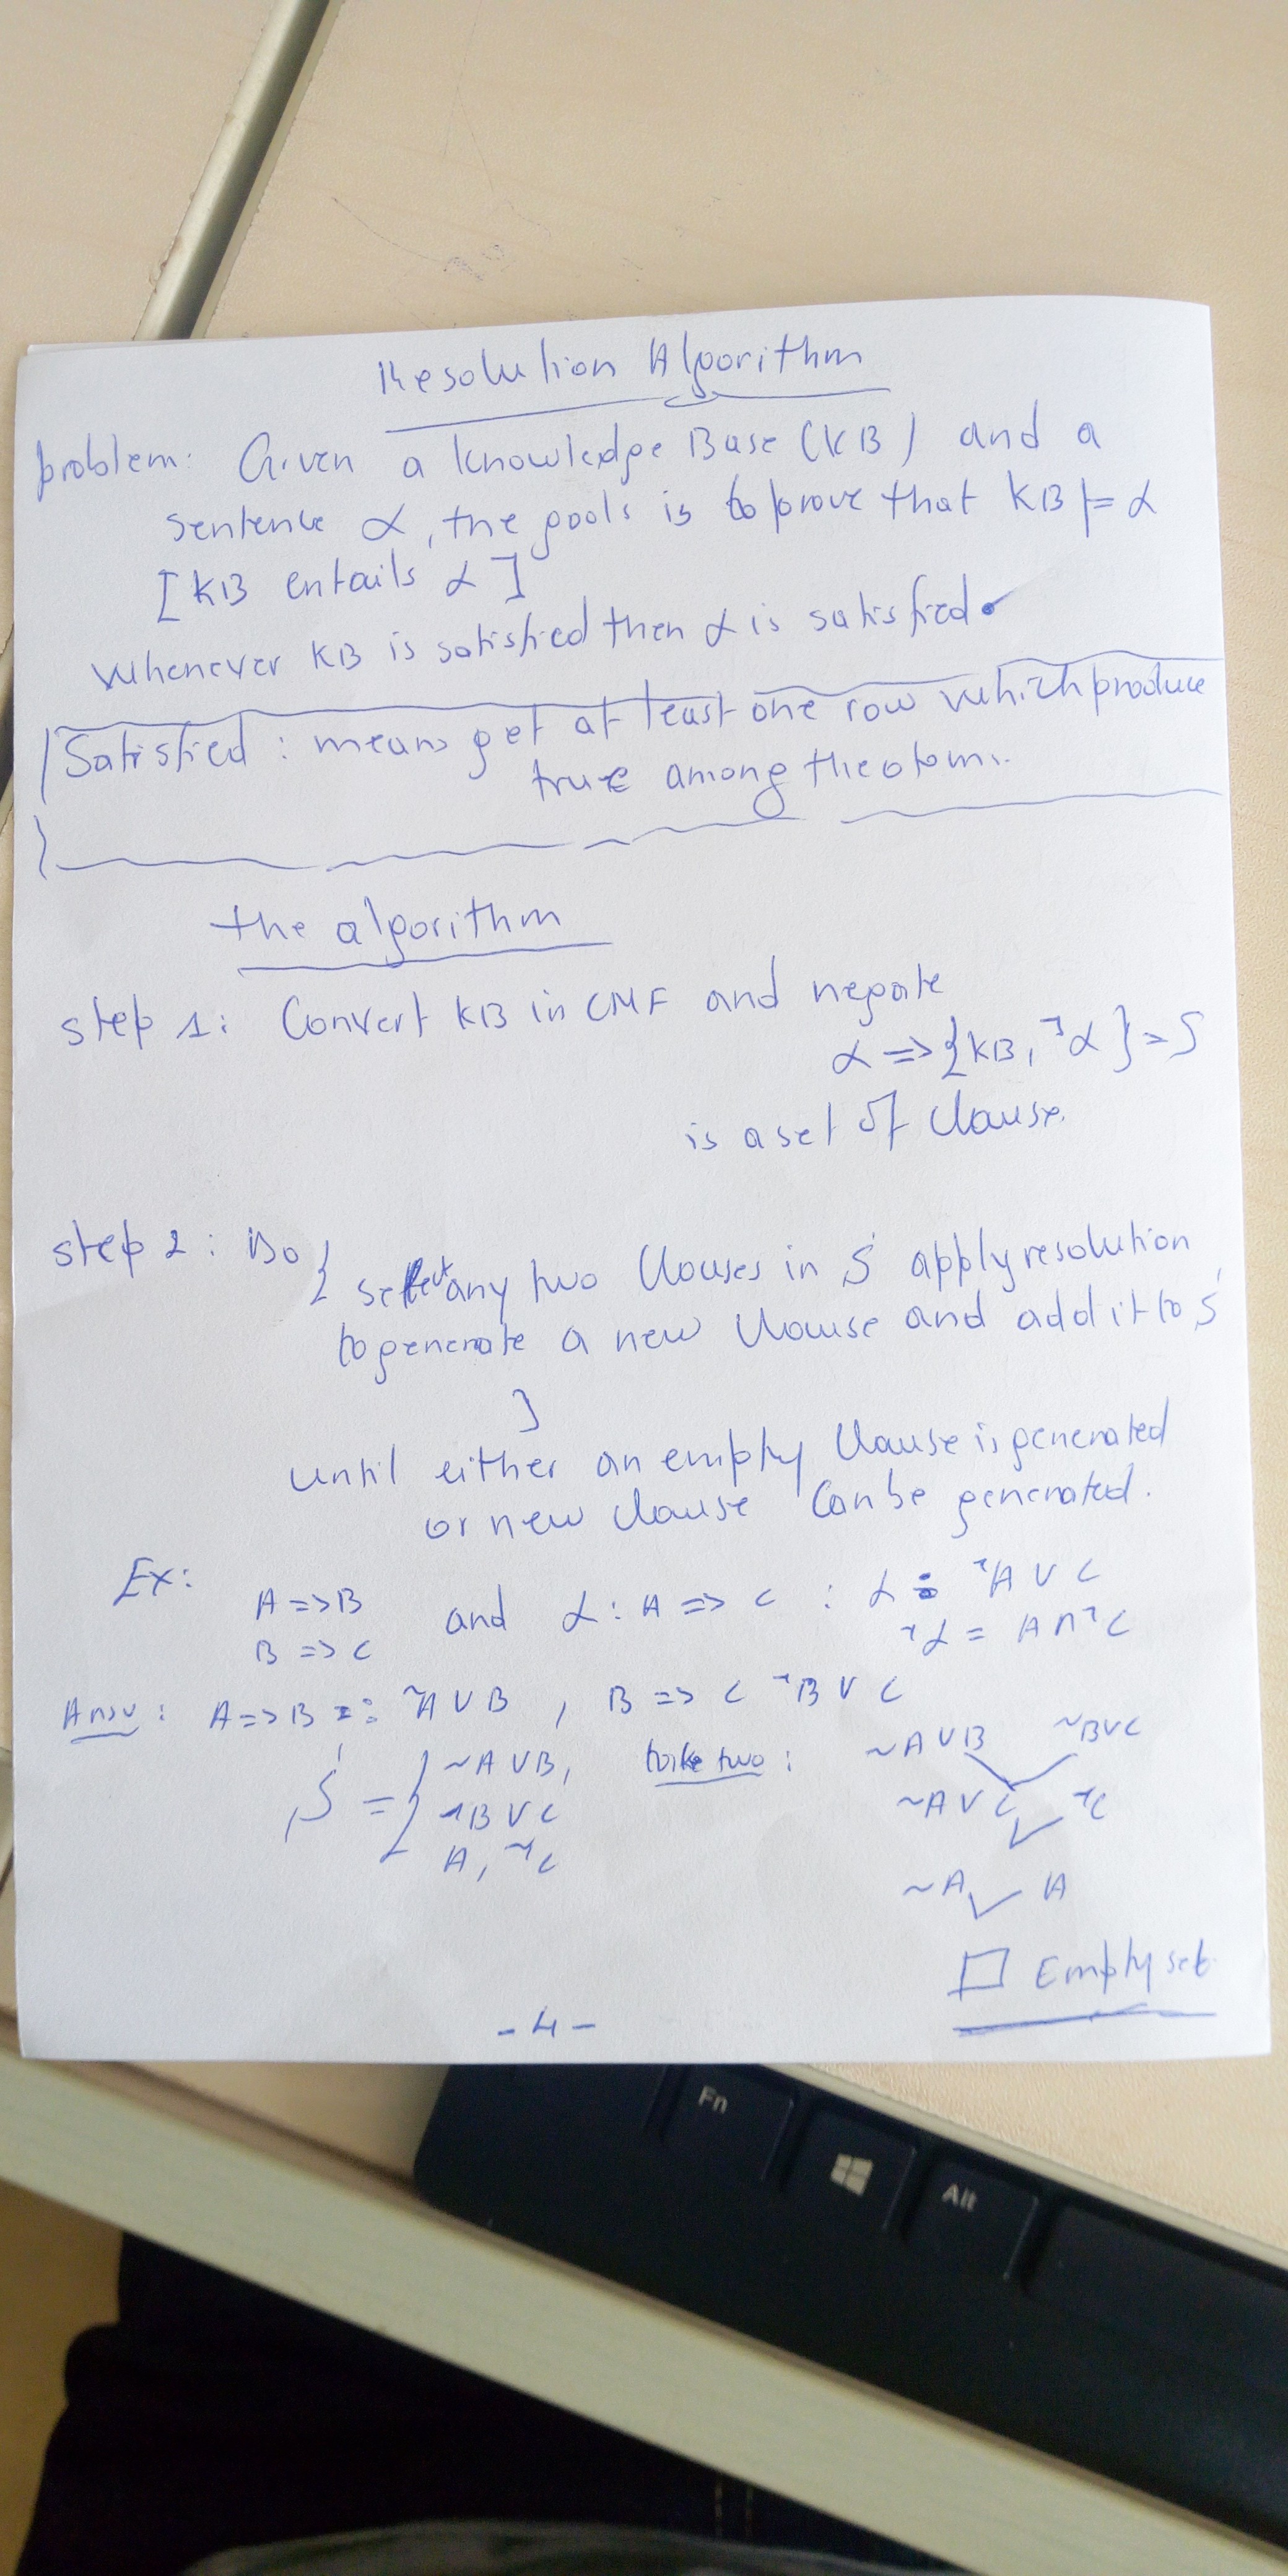 Resolution Algorithm
problem: Given a knowledge Base (KB) and a
sentence α, the goals is to prove that KB ⊨ α
[KB entails α]
Whenever KB is satisfied then α is satisfied.
Satisfied : means get at least one row which produce
true among the atoms.
the algorithm
step 1: Convert KB in CNF and negate
α => {KB, ¬α} = S
is a set of clause.
step 2 : Do {
select any two clauses in S apply resolution
to generate a new clause and add it to S
}
until either an empty clause is generated
or new clause can be generated.
Ex:
A => B
B => C
and α : A => C : α = ¬A ∨ C
¬α = A ∧ ¬C
Answ : A => B = ¬A ∨ B , B => C ¬B ∨ C
S = { ~A ∨ B,
¬B ∨ C
A, ¬C
take two :
~A ∨ B ~B ∨ C
~A ∨ C ¬C
~A A
□ Empty set
- 4 -
Fn
Alt